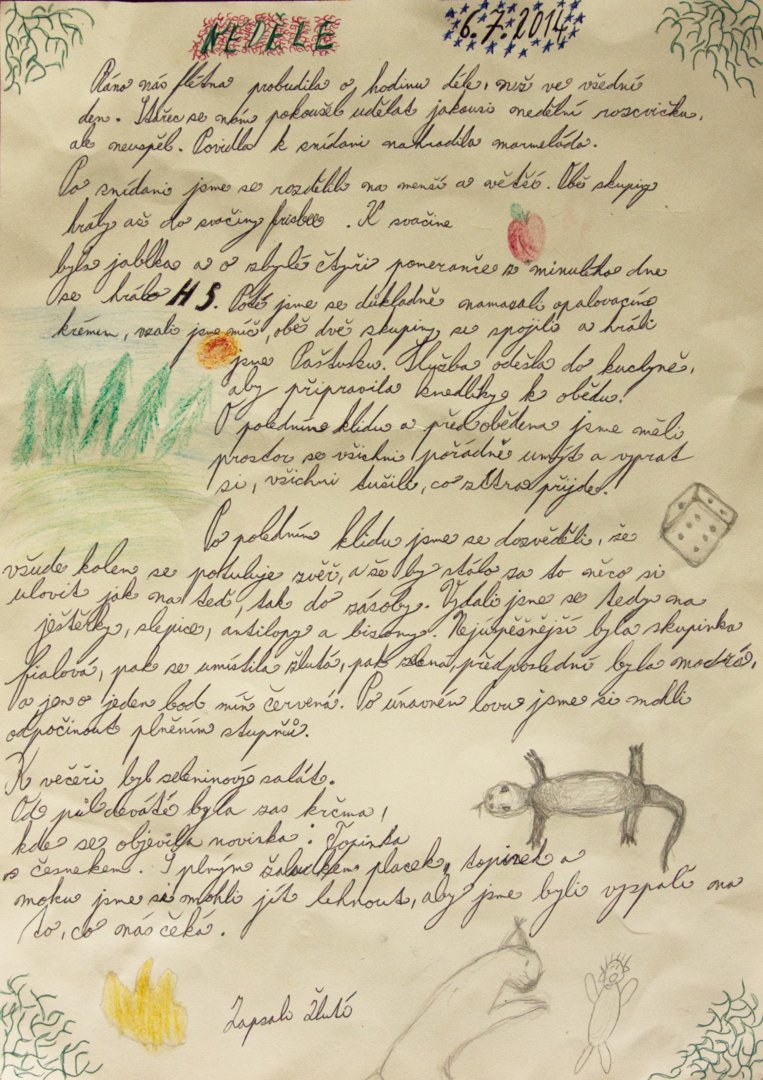 NEDĚLE 6.7.2014
Ráno nás flétna probudila o hodinu déle, než ve všední
den. Střec se nám pokoušel udělat jakousi nedělní rozcvičku,
ale neuspěl. Povidla k snídani nahradila marmeláda.
Po snídani jsme se rozdělili na menší a větší. Obě skupiny
hrály až do svačiny frisbee. K svačine
byla jablka a o zbylé čtyři pomeranče z minulého dne
se hrálo H5. Poté jsme se důkladně namazali opalovacím
krémem, vzali jsme míč, obě dvě skupiny se spojili a hráli
jsme Paštusku. Služba odešla do kuchyně,
aby připravila knedlíky k obědu.
O poledním klidu a před obědem jsme měli
prostor se všichni pořádně umýt a vyprat
si, všichni tušili, co zítra přijde.
Po poledním klidu jsme se dozvěděli, že
všude kolem se potuluje zvěř, a že by stálo za to něco si
ulovit jak na teď, tak do zásoby. Vydali jsme se tedy na
ještěrky, slepice, antilopy a bizony. Nejúspěšnější byla skupinka
fialová, pak se umístila žlutá, pak zelená, předposlední byla modrá,
a jen o jeden bod míň červená. Po únavném lovu jsme si mohli
odpočinout plněním stupňů.
K večeři byl zeleninový salát.
Od půl deváté byla zas krčma,
kde se objevila novinka: Topinka
s česnekem. S plným žaludkem placek, topinek a
moku jsme si mohli jít lehnout, aby jsme byli vyspalí na
to, co nás čeká.
Zapsali Žlutí